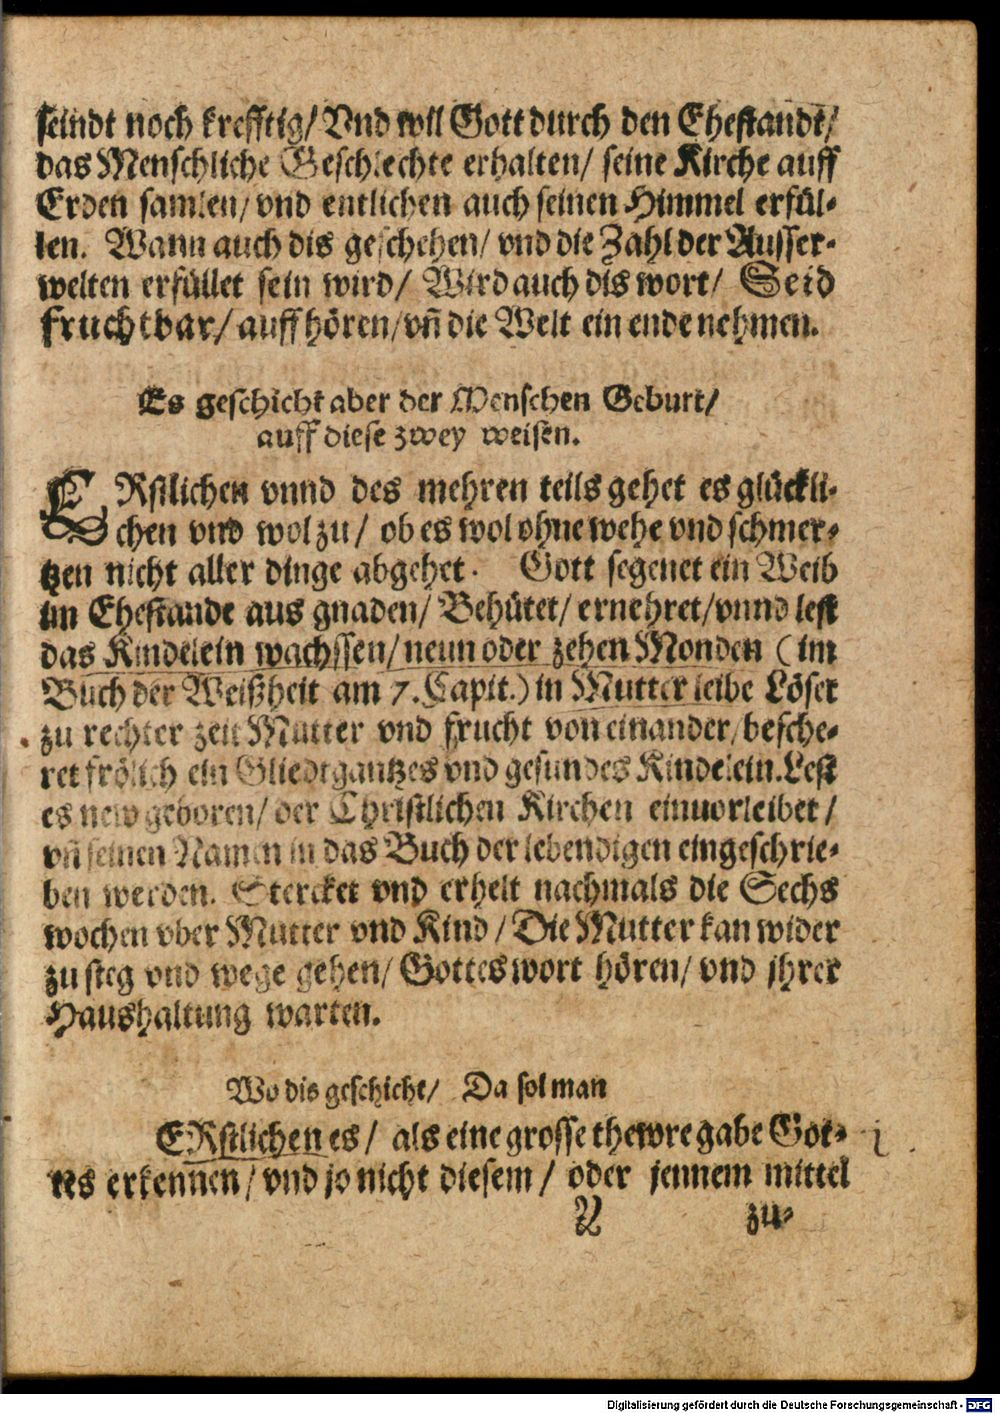 seindt noch krefftig/ Vnd wil Gott durch den Ehestandt/
das Menschliche Geschlechte erhalten/ seine Kirche auff
Erden samlen/ vnd entlichen auch seinen Himmel erfül-
len. Wann auch dis geschehen/ vnd die Zahl der Ausser-
welten erfüllet sein wird/ Wird auch dis wort/ Seid
fruchtbar/ auffhören/ vñ die Welt ein ende nehmen.
Es geschicht aber der Menschen Geburt/
auff diese zwey weisen.
ERstlichen vnnd des mehren teils gehet es glückli-
chen vnd wol zu/ ob es wol ohne wehe vnd schmer-
tzen nicht aller dinge abgehet. Gott segenet ein Weib
im Ehestande aus gnaden/ Behütet/ ernehret/ vnnd lest
das Kindelein wachssen/ neun oder zehen Monden (im
Buch der Weißheit am 7. Capit.) in Mutter leibe Löset
zu rechter zeit Mutter vnd frucht von einander/ besche-
ret frölich ein Gliedtgantzes vnd gesundes Kindelein. Lest
es new geboren/ der Christlichen Kirchen einuorleibet/
vñ seinen Namen in das Buch der lebendigen eingeschrie-
ben werden. Stercket vnd erhelt nachmals die Sechs
wochen vber Mutter vnd Kind/ Die Mutter kan wider
zu steg vnd wege gehen/ Gottes wort hören/ vnd jhrer
Haushaltung warten.
Wo dis geschicht/ Da sol man
ERstlichen es/ als eine grosse thewre gabe Got-
tes erkennen/ vnd jo nicht diesem/ oder jennem mittel
A zu-
Digitalisierung gefördert durch die Deutsche Forschungsgemeinschaft - DFG